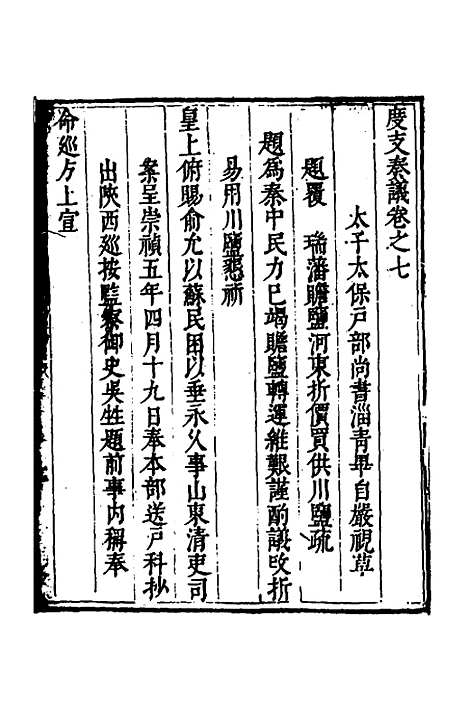 度支奏議卷之七
太子太保戸部尚書淄青畢自嚴視草
題覆　瑞藩贍鹽河東折價買供川鹽疏
題為秦中民力已竭贍鹽轉運維艱謹酌議改折
易用川鹽懇祈
皇上俯賜俞允以蘇民困以垂永久事山東清吏司
案呈崇禎五年四月十九日奉本部送戸科抄
出陝西廵按監察御史吳甡題前事內稱奉
命廵方上宣